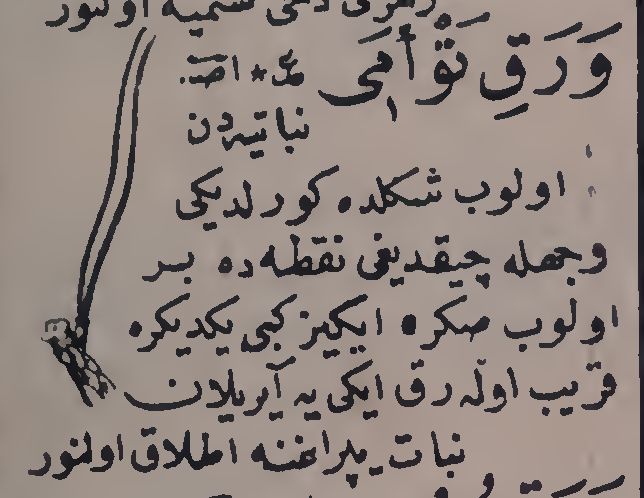 دخی تسمیه اولنور
وَرَقِ تَوْأَمِی
نباتیه‌دن
اولوب شکلده کورلدیکی
وجهله چیقدیغی نقطه‌ده بر
اولوب صکره ایکیز کبی یکدیکره
قریب اوله‌رق ایکی‌یه آیریلان
نبات یپراغنه اطلاق اولنور